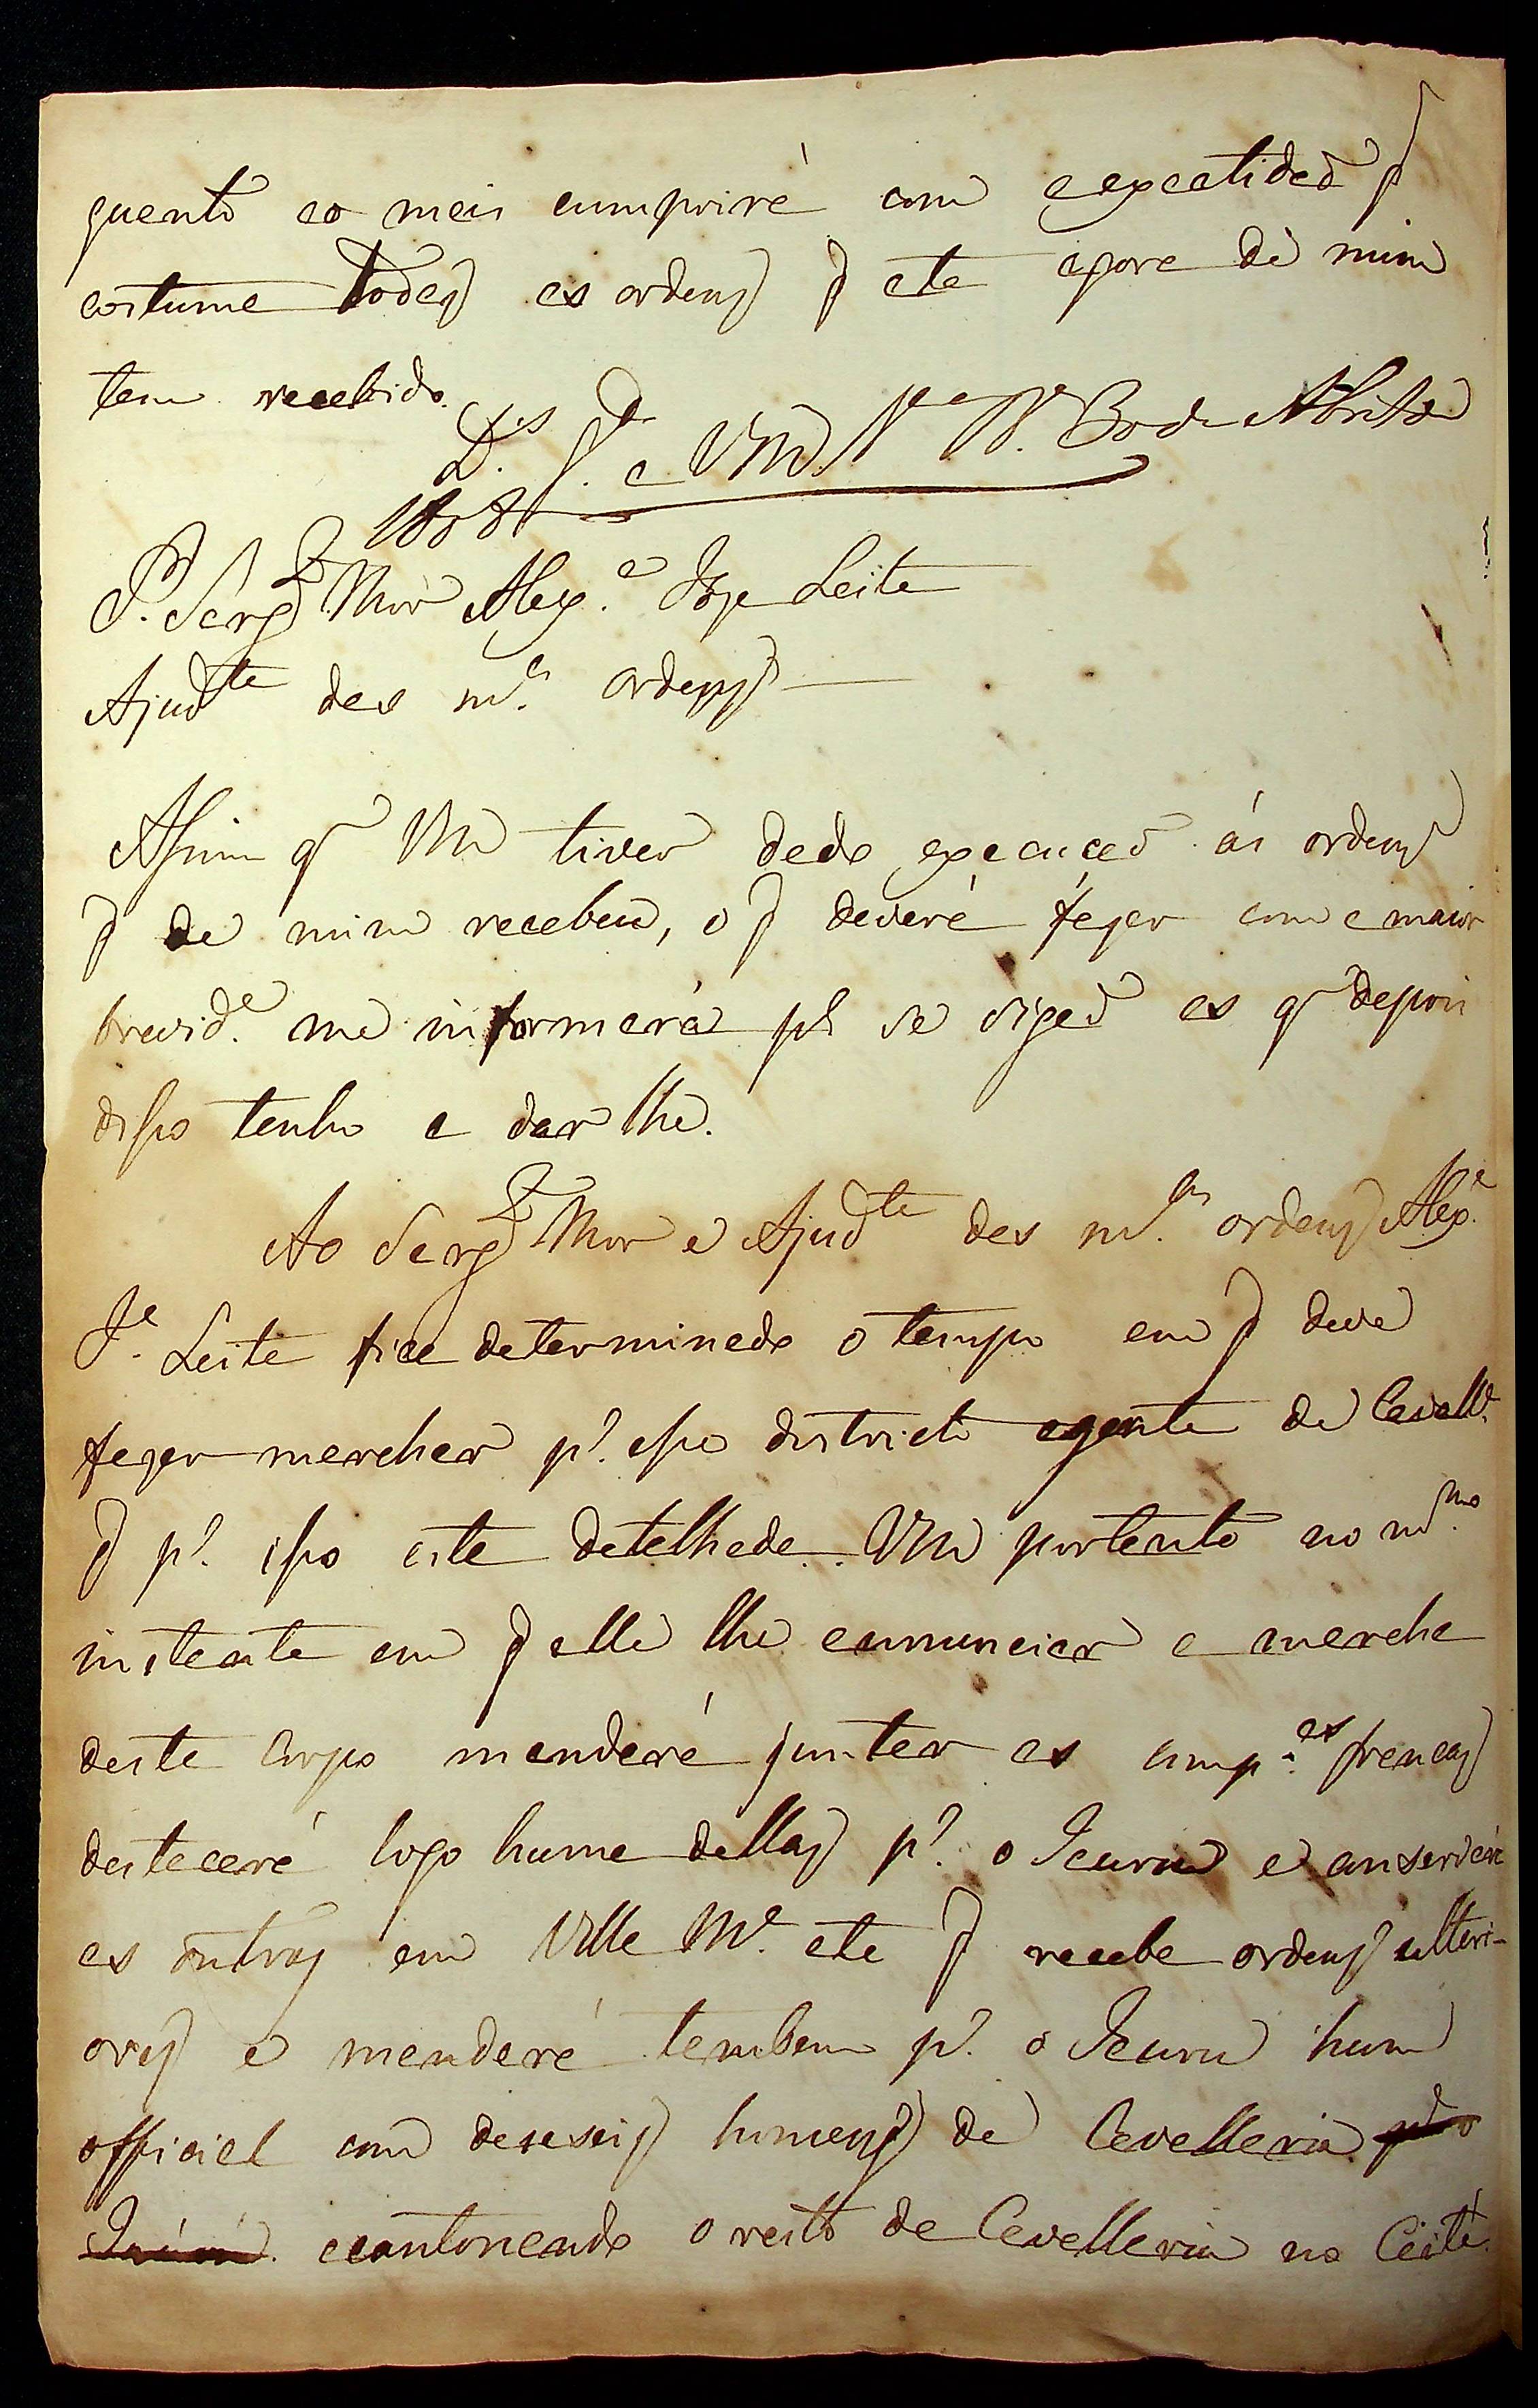 quanto ao mais cumprirá com a exactidaõ q̃
costuma todas as ordens q̃ ate agora de mim
tem recebido.
D.s g.de a Vm.
1808
S.r Sarg.to Mor Alex.e Joze Leite
Ajud.te das m.as ordens
Assim q̃ Vm tiver dado execuçaõ ás ordens
q̃ de mim recebeu, o q̃ deverá fazer com a maior
brevid.e me informará p.a se sigaõ as q̃ depois
disso tenho a dar lhe.
Ao Sarg.to Mor e Ajud.te das m.as ordens Alex.e
J.e Leite fica determinado o tempo em q̃ deve
fazer marchar p.a esse districto a gente de Cavall.a
q̃ p.a isso está detalhada. Vm portanto no m.mo
instante em q̃ elle lhe annunciar a marcha
deste Corpo mandará juntar as comp.as francas
destacará logo huma dellas p.a o Icurú e conservará
as outras em Villa M.a ate q̃ receba ordens ulteri-
ores e mandará tambem p.a o Icurú hum
official com deseseis homens de Cavalleria
acantonando o resto de Cavalleria no Caité.